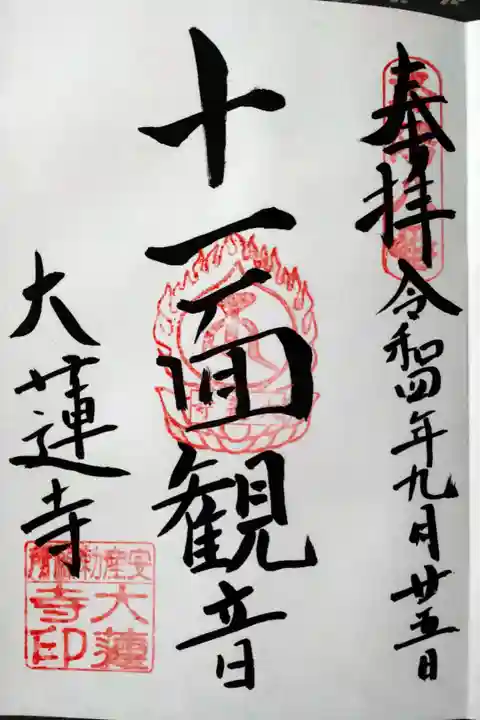 奉拝
令和四年九月廿五日
十一面観音
大蓮寺
安産勅願所
大蓮
寺印